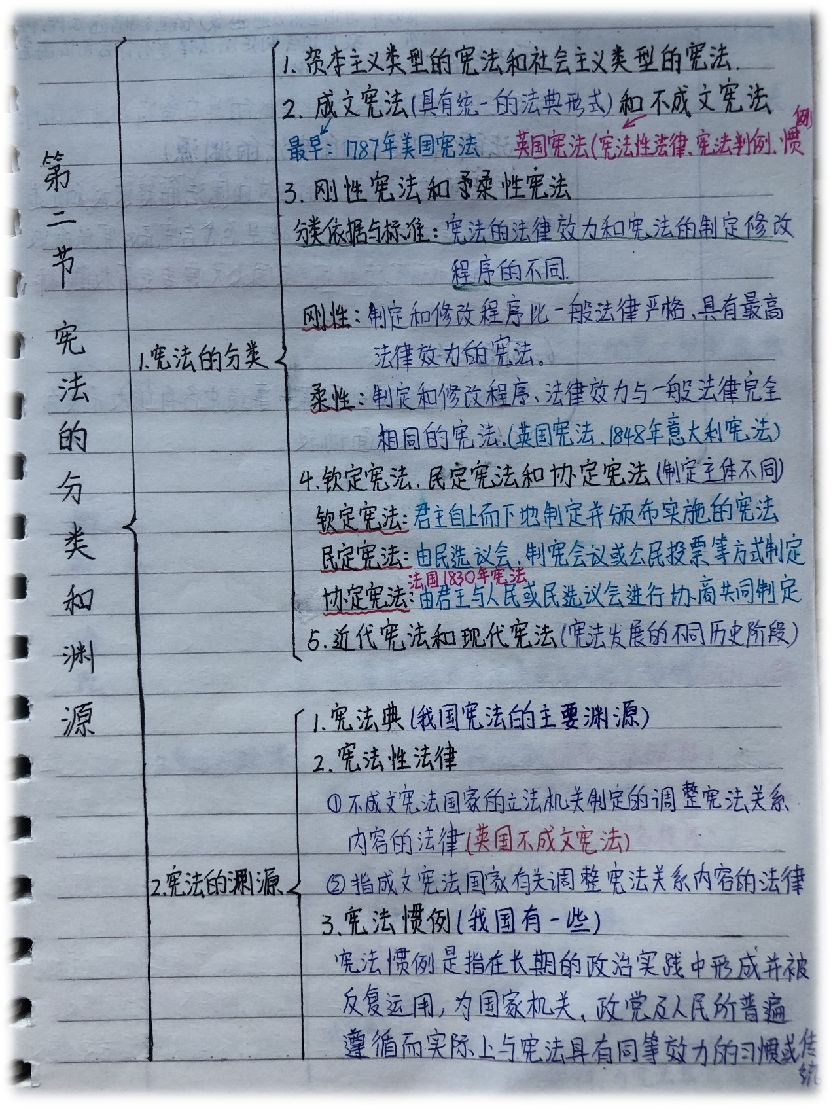 第二节 宪法的分类和渊源
1.宪法的分类
1. 资本主义类型的宪法和社会主义类型的宪法.
2. 成文宪法(具有统一的法典形式)和不成文宪法
最早: 1787年美国宪法 英国宪法(宪法性法律、宪法判例、惯例
3. 刚性宪法和柔性宪法
分类依据与标准: 宪法的法律效力和宪法的制定修改
程序的不同.
刚性: 制定和修改程序比一般法律严格、具有最高
法律效力的宪法。
柔性: 制定和修改程序、法律效力与一般法律完全
相同的宪法.(英国宪法、1848年意大利宪法)
4.钦定宪法、民定宪法和协定宪法(制定主体不同)
钦定宪法: 君主自上而下地制定并颁布实施的宪法
民定宪法: 由民选议会、制宪会议或公民投票等方式制定
法国1830年宪法
协定宪法: 由君主与人民或民选议会进行协商共同制定
5.近代宪法和现代宪法(宪法发展的不同历史阶段)
2.宪法的渊源
1.宪法典(我国宪法的主要渊源)
2.宪法性法律
①不成文宪法国家的立法机关制定的调整宪法关系
内容的法律(英国不成文宪法)
②指成文宪法国家有关调整宪法关系内容的法律
3.宪法惯例(我国有一些)
宪法惯例是指在长期的政治实践中形成并被
反复运用,为国家机关、政党及人民所普遍
遵循而实际上与宪法具有同等效力的习惯或传统